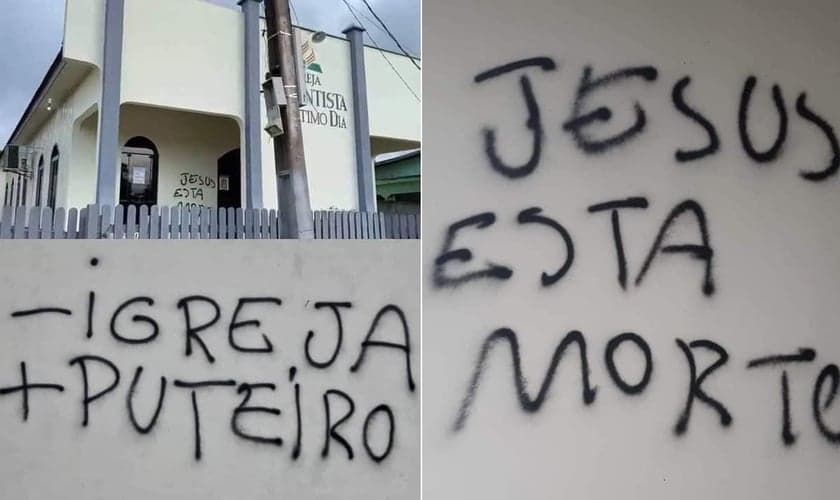 EJA
NTISTA
TIMO DIA
JESUS
ESTA
- IGREJA
+ PUTEIRO
JESUS
ESTA
MORTO